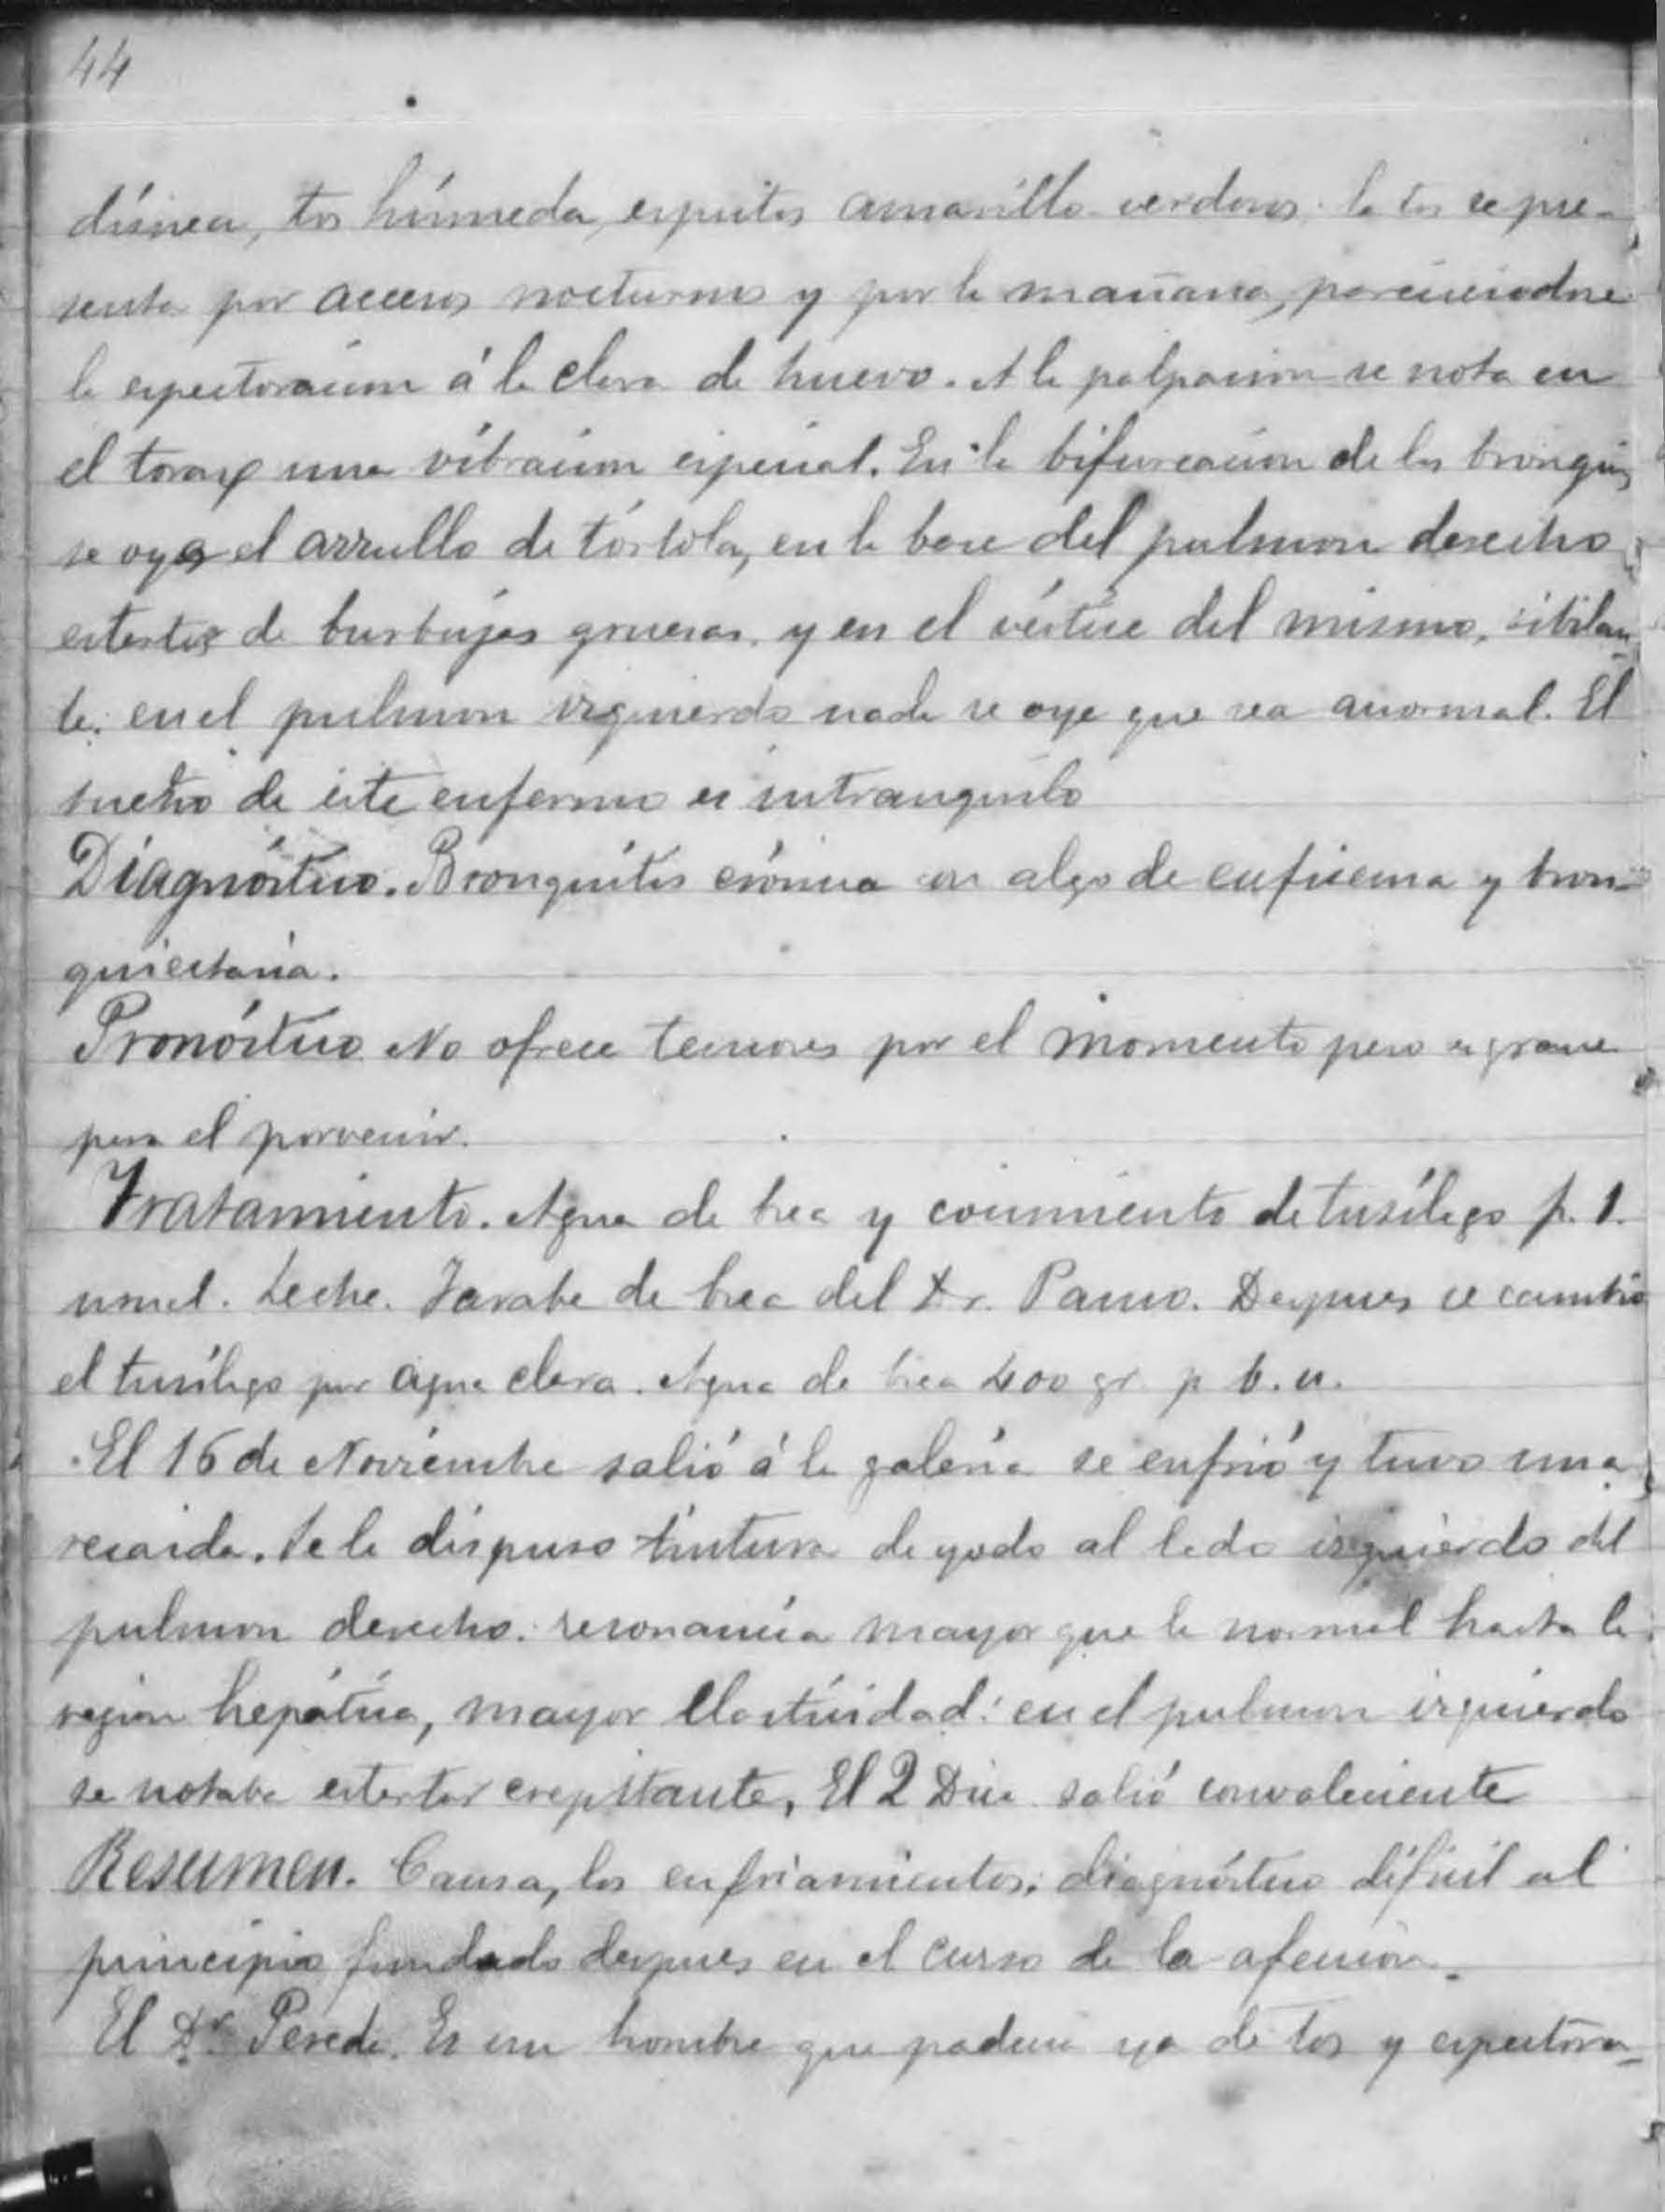 44
disnea, tos húmeda, esputos amarillo verdosos: la tos se pre-
senta por accesos nocturnos y por la mañana, pareciendose
la espectoracion á la clara de huevo. A la palpacion se nota en
el torax una vibracion especial. En la bifurcacion de los bronquios
se oye el arrullo de tórtola, en la base del pulmon derecho
estertor de burbujas gruesas, y en el vértice del mismo, sibilan-
te: en el pulmon izquierdo nada se oye que sea anormal. El
sueño de este enfermo es intranquilo
Diagnóstico. Bronquitis crónica con algo de enfisema y bron-
quiectasia.
Pronóstico No ofrece temores por el momento pero es grave
para el porvenir.
Tratamiento. Agua de brea y cocimiento de tusílago p. 1.
usual. Leche. Jarabe de brea del Dr. Despues se cambió
el tusílago por agua clara. Agua de brea 400 gr p b. u.
El 16 de Noviembre salió á la galeria se enfrió y tuvo una
recaida. Se le dispuso tintura de yodo al lado izquierdo del
pulmon derecho: resonancia mayor que la normal hasta la
region hepática, mayor elasticidad: en el pulmon izquierdo
se notaba estertor crepitante, El 2 Dice salió convaleciente
Resumen. Causa, los enfriamientos: diagnóstico dificil al
principio fundado despues en el curso de la afeccion.
El Dr. Pereda. Es un hombre que padecia ya de tos y espectora-